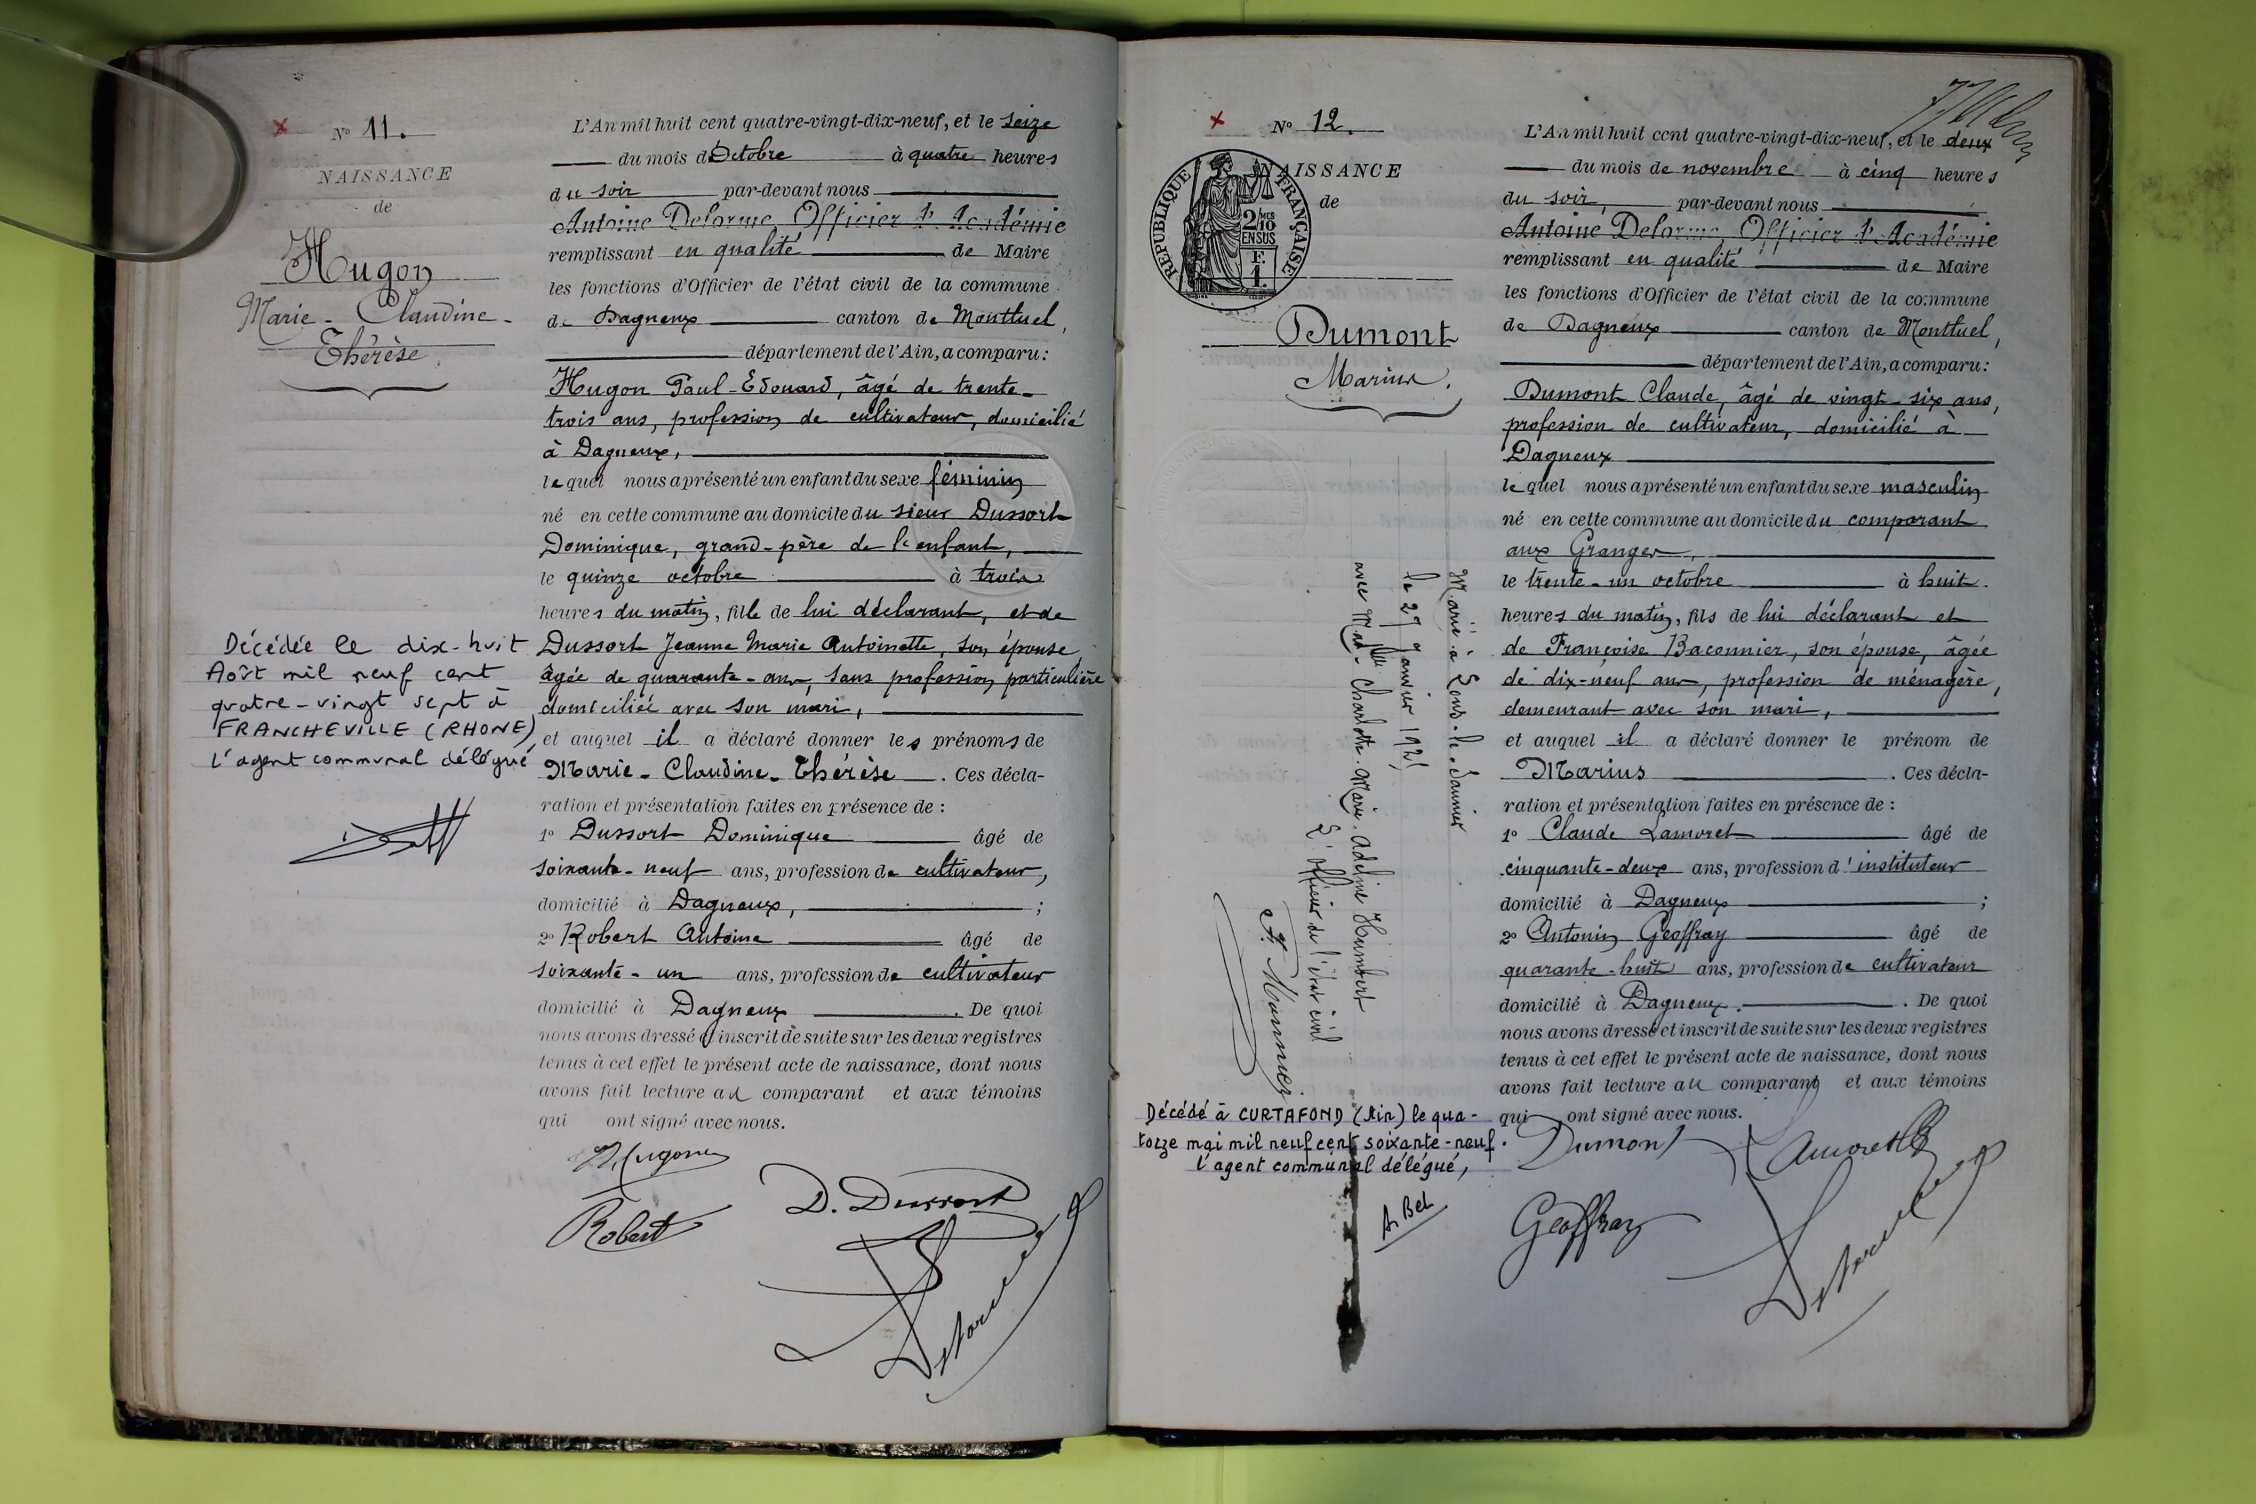 Nº 11.
NAISSANCE
de
Hugon
Marie - Claudine -
Thérèse.
Décédée le dix-huit
Août mil neuf cent
quatre-vingt sept à
FRANCHEVILLE (RHONE)
l'agent communal délégué
L'An mil huit cent quatre-vingt-dix-neuf, et le seize
du mois d'Octobre à quatre heures
du soir par-devant nous
Antoine Delorme Officier d'Académie
remplissant en qualité de Maire
les fonctions d'Officier de l'état civil de la commune
de Dagneux canton de Montluel,
département de l'Ain, a comparu:
Hugon Paul-Edouard, âgé de trente-
trois ans, profession de cultivateur, domicilié
à Dagneux,
lequel nous a présenté un enfant du sexe féminin
né en cette commune au domicile du sieur Dussort
Dominique, grand-père de l'enfant,
le quinze octobre à trois
heures du matin, fille de lui déclarant, et de
Dussort Jeanne Marie Antoinette, son épouse,
âgée de quarante-ans, sans profession particulière
domiciliée avec son mari,
et auquel il a déclaré donner les prénoms de
Marie-Claudine-Thérèse. Ces décla-
ration et présentation faites en présence de :
1º Dussort Dominique âgé de
soixante-neuf ans, profession de cultivateur,
domicilié à Dagneux, ;
2º Robert Antoine âgé de
soixante-un ans, profession de cultivateur
domicilié à Dagneux. De quoi
nous avons dressé et inscrit de suite sur les deux registres
tenus à cet effet le présent acte de naissance, dont nous
avons fait lecture au comparant et aux témoins
qui ont signé avec nous.
Hugon
Robert D. Dussort
Delorme
Nº 12.
NAISSANCE
de
RÉPUBLIQUE FRANÇAISE
2/10 MES
EN SUS
F.
1.
Dumont
Marius.
Marié à Lons-le-Saunier
le 29 Janvier 192
avec Mlle Charlotte-Marie-Adeline Humbert
L'officier de l'état civil
Décédé à CURTAFOND (Ain) le qua-
torze mai mil neuf cent soixante-neuf.
l'agent communal délégué,
A. Bel
L'An mil huit cent quatre-vingt-dix-neuf, et le deux
du mois de novembre à cinq heures
du soir, par-devant nous
Antoine Delorme Officier d'Académie
remplissant en qualité de Maire
les fonctions d'Officier de l'état civil de la commune
de Dagneux canton de Montluel,
département de l'Ain, a comparu:
Dumont Claude, âgé de vingt-six ans,
profession de cultivateur, domicilié à
Dagneux
lequel nous a présenté un enfant du sexe masculin
né en cette commune au domicile du comparant
aux Granges,
le trente-un octobre à huit
heures du matin, fils de lui déclarant et
de Françoise Baconnier, son épouse, âgée
de dix-neuf ans, profession de ménagère,
demeurant avec son mari,
et auquel il a déclaré donner le prénom de
Marius. Ces décla-
ration et présentation faites en présence de :
1º Claude Lamoret âgé de
cinquante-deux ans, profession d'instituteur
domicilié à Dagneux ;
2º Antonin Geoffray âgé de
quarante-huit ans, profession de cultivateur
domicilié à Dagneux. De quoi
nous avons dressé et inscrit de suite sur les deux registres
tenus à cet effet le présent acte de naissance, dont nous
avons fait lecture au comparant et aux témoins
qui ont signé avec nous.
Dumont Lamoret
Geoffray
Delorme